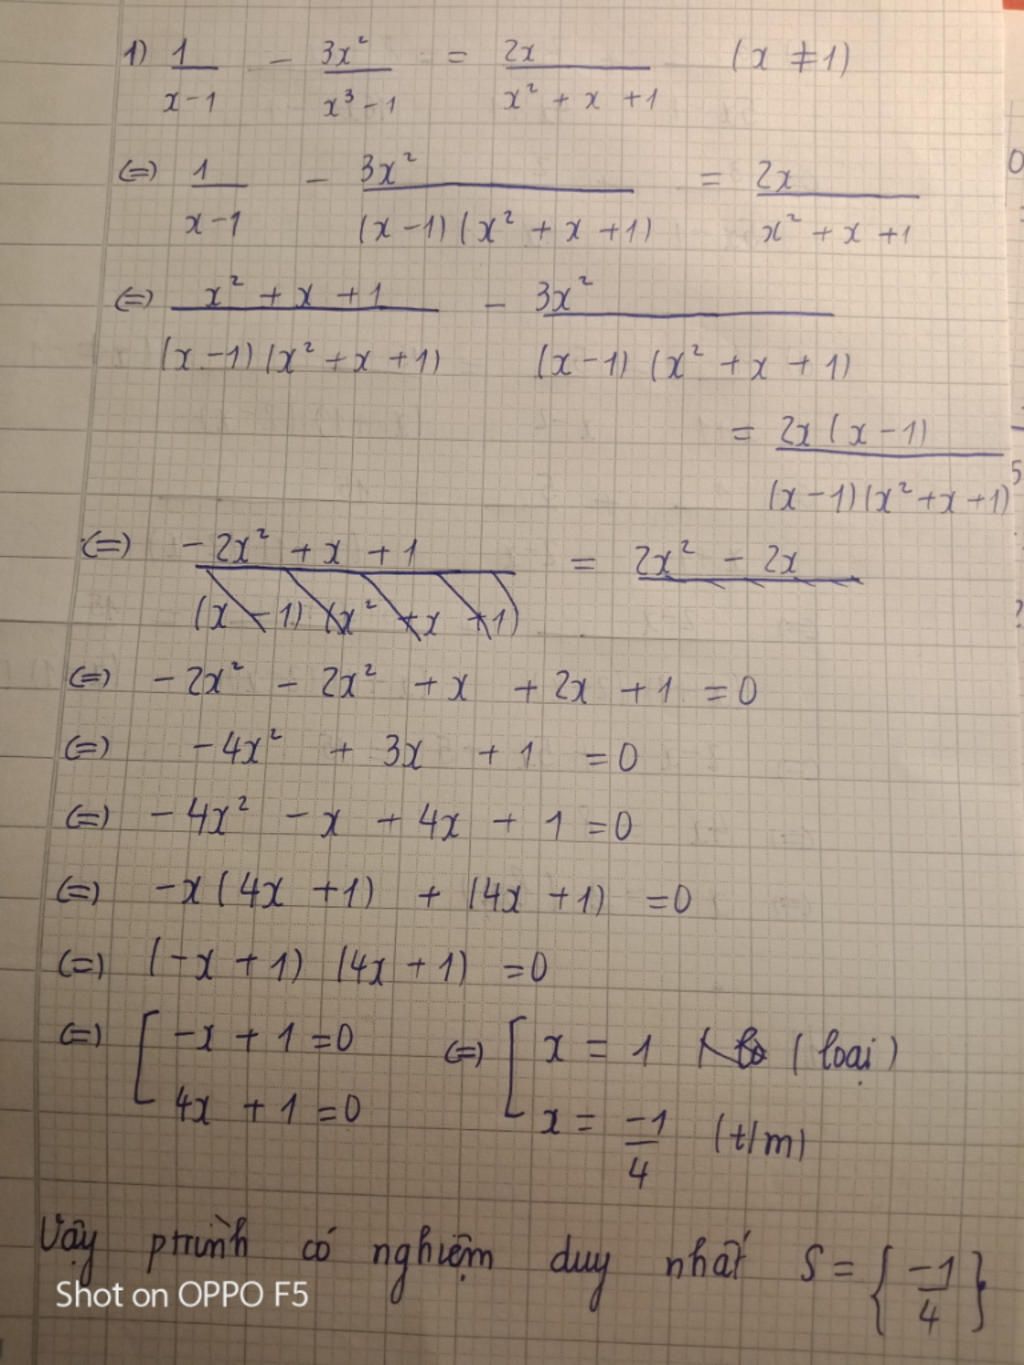 1) 1/(x-1) - 3x²/(x³-1) = 2x/(x²+x+1) (x ≠ 1)
(=) 1/(x-1) - 3x²/((x-1)(x²+x+1)) = 2x/(x²+x+1)
(=) (x²+x+1)/((x-1)(x²+x+1)) - 3x²/((x-1)(x²+x+1))
= 2x(x-1)/((x-1)(x²+x+1))
(=) (-2x²+x+1)/((x-1)(x²+x+1)) = 2x² - 2x
(=) -2x² - 2x² + x + 2x + 1 = 0
(=) -4x² + 3x + 1 = 0
(=) -4x² - x + 4x + 1 = 0
(=) -x(4x+1) + (4x+1) = 0
(=) (-x+1)(4x+1) = 0
(=) [ -x+1=0 (=) [ x = 1 (loại)
4x+1=0 x = -1/4 (t/m)
Vậy ptrình có nghiệm duy nhất S = {-1/4}
Shot on OPPO F5